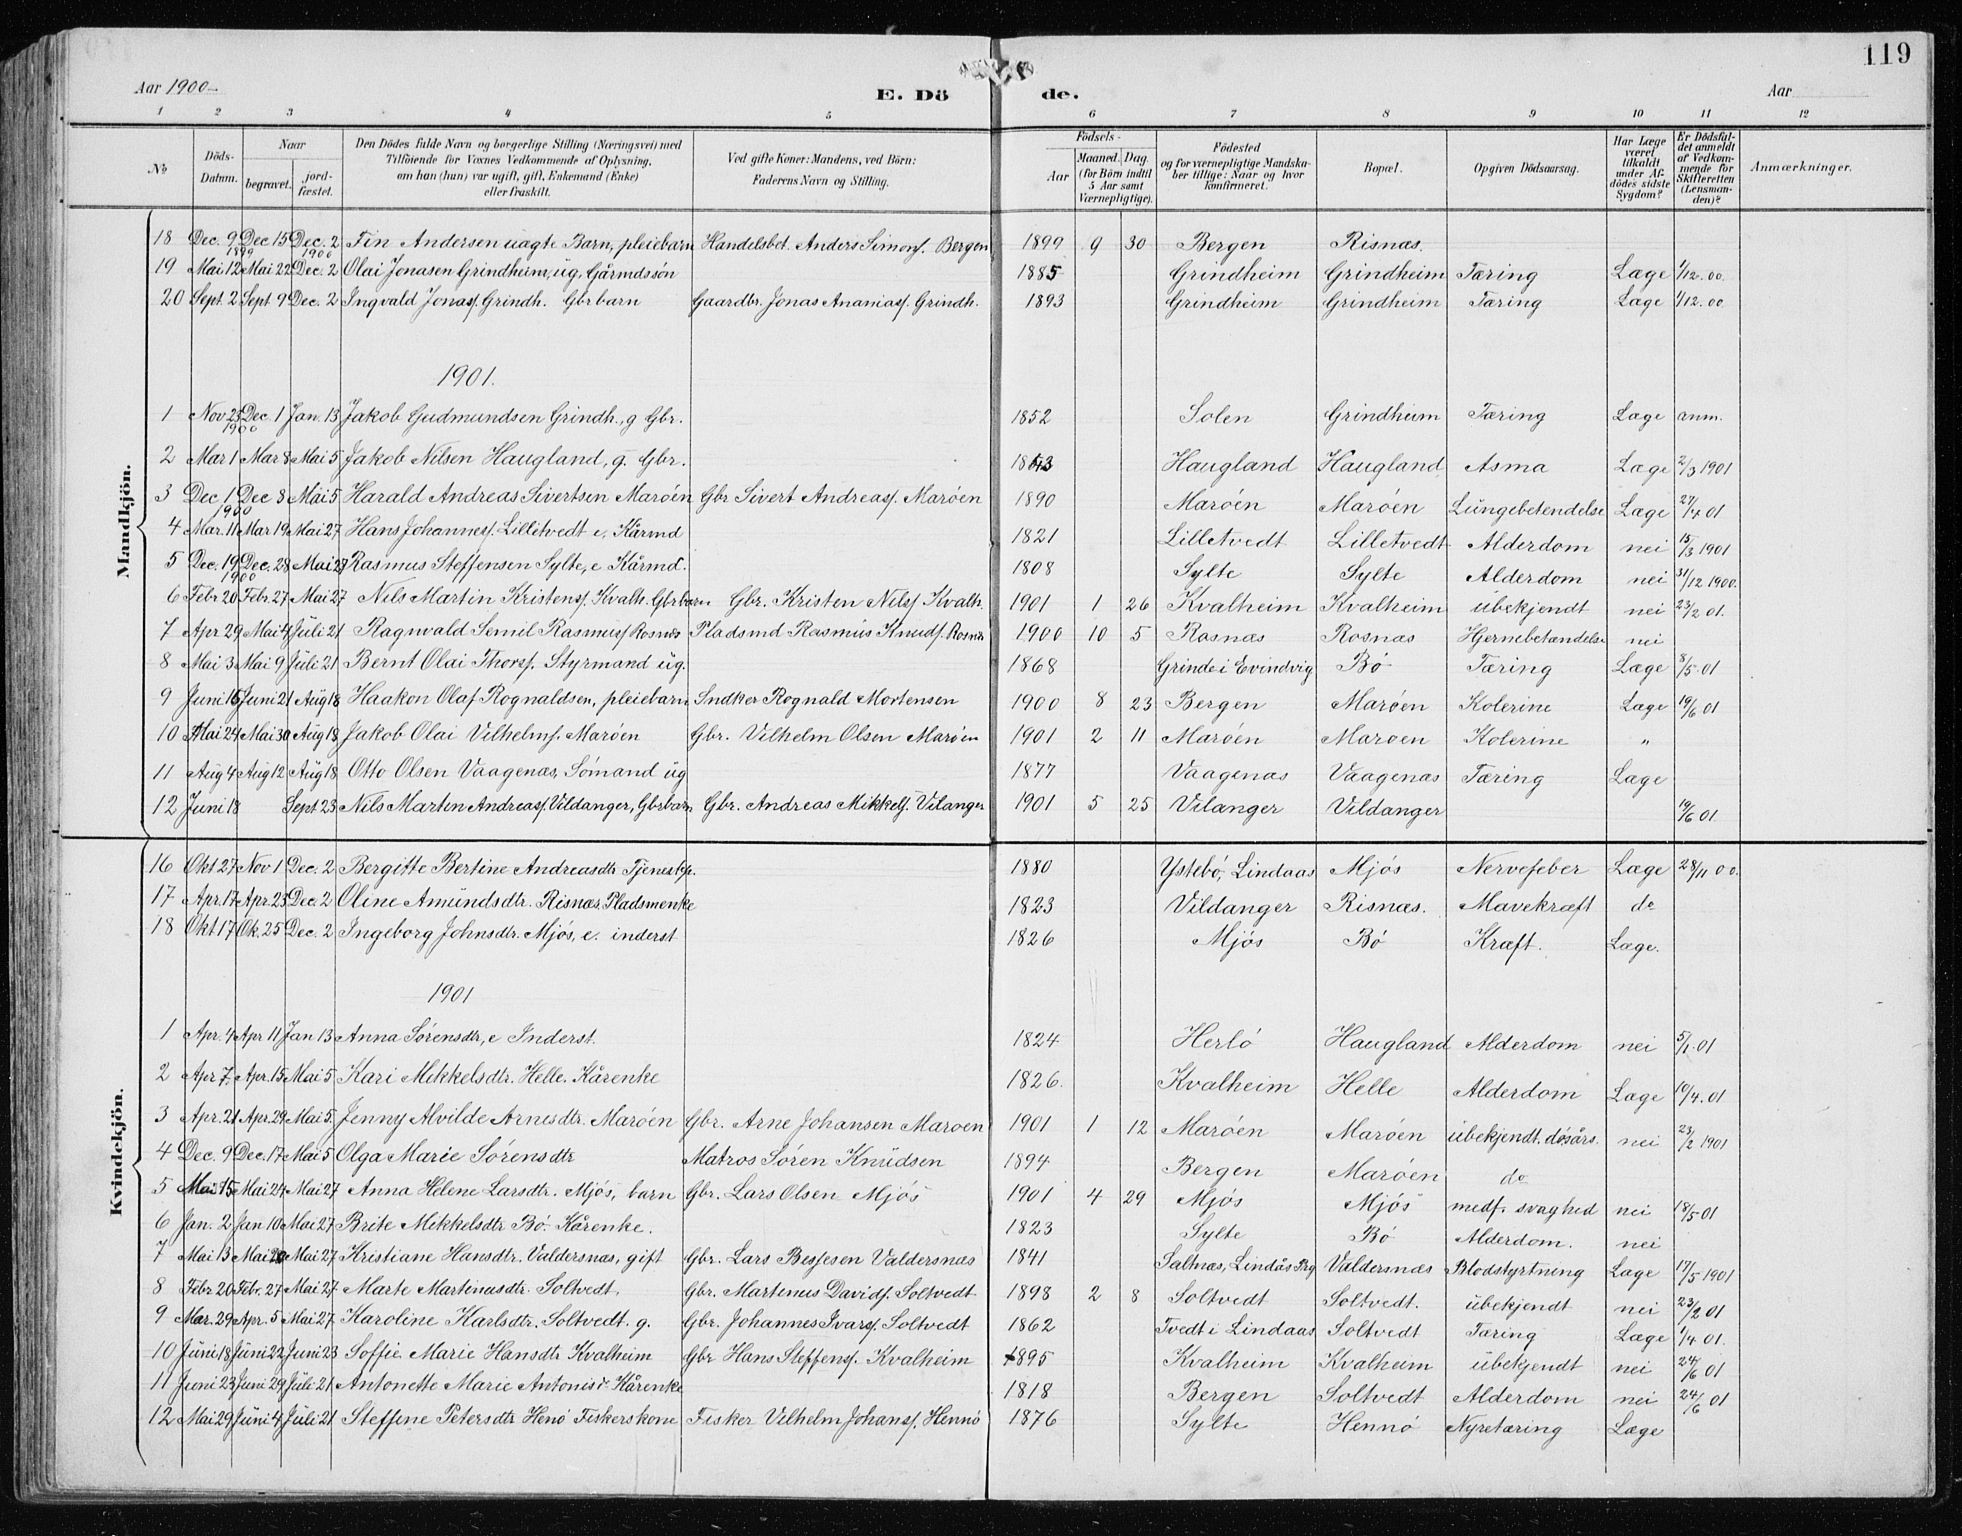 119
Aar 1900– E. Dö de. Aar
1 2 3 4 5 6 7 8 9 10 11 12
№ Döds-Datum. Naar begravet. jord-fæstet. Den Dödes fulde Navn og borgerlige Stilling (Næringsvei) med Tilföiende for Voxnes Vedkommende af Oplysning, om han (hun) var ugift, gift, Enkemand (Enke) eller fraskilt. Ved gifte Koner: Mandens, ved Börn: Faderens Navn og Stilling. Födsels- Aar Maaned. Dag. (for Börn indtil 5 Aar samt Værnepligtige). Födested og for værnepligtige Mandska-ber tillige: Naar og hvor konfirmeret. Bopæl. Opgiven Dödsaarsag. Har Læge været tilkaldt under Af-dödes sidste Sygdom? Er Dödsfal-det anmeldt af Vedkom-mende for Skifteretten (Lensman-den)? Anmærkninger.
Mandkjön.
18 Dec. 9 1899 Dec 15 Dec. 2 1900 Fin Andersen uægte Barn, pleiebarn Handelsbet. Anders Simons. Bergen 1899 9 30 Bergen Risnæs.
19 Mai 12 Mai 22 Dec. 2 Olai Jonasen Grindheim, ug, Gårmdssön 1885 Grindheim Grindheim Tæring Læge 1/12.00.
20 Sept. 2 Sept 9 Dec. 2 Ingvald Jonass. Grindh. Gbrbarn Gaardbr. Jonas Ananiass. Grindh. 1893 Grindheim Grindheim Tæring Læge 1/12.00.
1901.
1 Nov 25 1900 Dec. 1 Jan. 13 Jakob Gudmundsen Grindh., g Gbr. 1852 Solen Grindheim Tæring Læge anm.
2 Mar 1 Mar 8 Mai 5 Jakob Nilsen Haugland, g. Gbr. 1843 Haugland Haugland Asma Læge 2/3 1901
3 Dec 1 1900 Dec 8 Mai 5 Harald Andreas Sivertsen Maröen Gbr Sivert Andreass. Maröen 1890 Maröen Maröen Lungebetendelse Læge 27/4 01
4 Mar. 11 Mar 19 Mai 27 Hans Johanness. Lilletvedt e. Kårmd 1821 Lilletvedt Lilletvedt Alderdom nei 15/3 1901
5 Dec. 19 1900 Dec. 28 Mai 27 Rasmus Steffensen Sylte, e Kårmd. 1808 Sylte Sylte Alderdom nei 31/12 1900.
6 Febr 20 Febr. 27 Mai 27 Nils Martin Kristens. Kvalh. Gbrbarn Gbr. Kristen Nilss Kvalh. 1901 1 26 Kvalheim Kvalheim ubekjendt nei 23/2 01.
7 Apr 29 Mai 4 Juli 21 Ragnvald Semil Rasmuss Rosnæs Pladsmd Rasmus Knuds. Rosnæs 1900 10 5 Rosnæs Rosnæs Hjernebetændelse nei
8 Mai 3 Mai 9 Juli 21 Bernt Olai Thorss. Styrmand ug. 1868 Grinde i Evindvig Bö Tæring Læge 8/5.01
9 Juni 15 Juni 21 Aug 18 Haakon Olaf Rognaldsen, pleiebarn Sndker Rognald Mortensen 1900 8 23 Bergen Maröen Kolerine Læge 19/6 01
10 Mai 24 Mai 30 Aug 18 Jakob Olai Vilhelms. Maröen Gbr. Vilhelm Olsen Maröen 1901 2 11 Maröen Maroen Kolerine "
11 Aug 4 Aug 12 Aug 18 Otto Olsen Vaagenæs, Sömand ug 1877 Vaagenæs Vaagenæs Tæring Læge
12 Juni 18 Sept 23 Nils Marten Andreass. Vildanger, Gbrbarn Gbr. Andreas Mikkels. Vilanger 1901 5 25 Vilanger Vildanger 19/6 01.
Kvindekjön.
16 Okt 27 Nov 1 Dec. 2 Bergitte Bertine Andreasdtr Tjenestp. 1880 Ystebö, Lindaas Mjös Nervefeber Læge 28/11 00.
17 Apr. 17 Apr. 23 Dec. 2 Oline Amundsdtr. Risnæs Pladsmenke 1823 Vildanger Risnæs. Mavekræft do
18 Okt 17 Ok. 25 Dec. 2 Ingeborg Johnsdtr. Mjös, e. inderst 1826 Mjös Bö Kræft. Læge.
1901
1 Apr. 4 Apr 11 Jan 13 Anna Sörensdtr, e Inderst. 1824 Herlö Haugland Alderdom nei 5/1.01
2 Apr 7. Apr. 15 Mai 5 Kari Mikkelsdtr. Helle. Kårenke 1826. Kvalheim Helle Alderdom Læge 10/4.01
3 Apr. 21 Apr. 29 Mai 5. Jenny Alvilde Arnesdtr. Maröen Gbr. Arne Johansen Maroen 1901 1 12 Maröen Maröen ubekjendt. dösårs. nei 23/2 1901
4 Dec. 9 Dec. 17 Mai 5 Olga Marie Sörensdtr Matros Sören Knudsen 1894 Bergen Maröen do
5 Mai 15 Mai 24 Mai 27 Anna Helene Larsdtr. Mjös, barn Gbr. Lars Olsen Mjös 1901 4 29 Mjös Mjös medf. svaghed nei 18/5 01
6 Jan. 2 Jan 10 Mai 27 Brite Mikkelsdtr Bö. Kårenke. 1823 Sylte Bö Alderdom. nei
7 Mai 13 Mai 20 Mai 27 Kristiane Hansdtr. Valdersnæs, gift Gbr. Lars Besjesen Valdersnæs 1841 Saltnæs, Lindås Prg Valdersnæs Blodstyrtning Læge 17/5 1901
8 Febr 20 Febr. 27 Mai 27. Marte Martinusdtr. Soltvedt. Gbr. Martinus Davids. Soltvedt 1898 2 8 Soltvedt Soltvedt. ubekjendt nei 23/2 01
9 Mar. 29 Apr. 5 Mai 27 Karoline Karlsdtr. Soltvedt. g. Gbr. Johannes Ivars. Soltvedt 1862 Tvedt i Lindaas Soltvedt Tæring Læge 1/4 01.
10 Juni 18 Juni 22 Juni 23 Soffie Marie Hansdtr Kvalheim Gbr Hans Steffens. Kvalheim 1895 Kvalheim Kvalheim ubekjendt nei 24/6 01
11 Juni 23 Juni 29 Juli 21 Antonette Marie Antonisdr Kårenke 1818 Bergen Soltvedt Alderdom nei 24/6 01
12 Mai 29 Juni 4 Juli 21 Steffine Petersdtr Henö Fiskerskone Fisker Vilhelm Johans. Hennö 1876 Sylte Hennö Nyretæring Læge